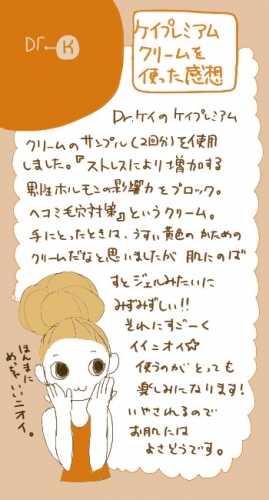 Dr.K
ケイプレミアム
クリームを
使った感想
Dr.ケイの ケイプレミアム
クリームのサンプル(2回分)を使用
しました。『ストレスにより増加する
男性ホルモンの影響力をブロック。
ヘコミ毛穴対策』というクリーム。
手にとったときは、うすい黄色の かための
クリームだなと思いましたが 肌にのば
すとジェルみたいに
みずみずしい!!
それにすごーく
イイニオイ☆
使うのが とっても
楽しみになります!
いやされるので
お肌には
よさそうです。
ほんまに
めっちゃいいニオイ。